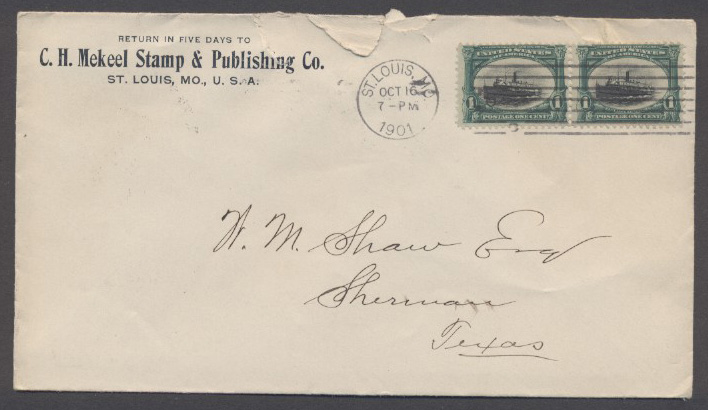 RETURN IN FIVE DAYS TO
C. H. Mekeel Stamp & Publishing Co.
ST. LOUIS, MO., U. S. A.
ST. LOUIS, MO.
OCT 16
7-PM
1901
UNITED STATES OF AMERICA
1 1
POSTAGE ONE CENT
UNITED STATES OF AMERICA
1 1
POSTAGE ONE CENT
W. M. Shaw Esq
Sherman
Texas